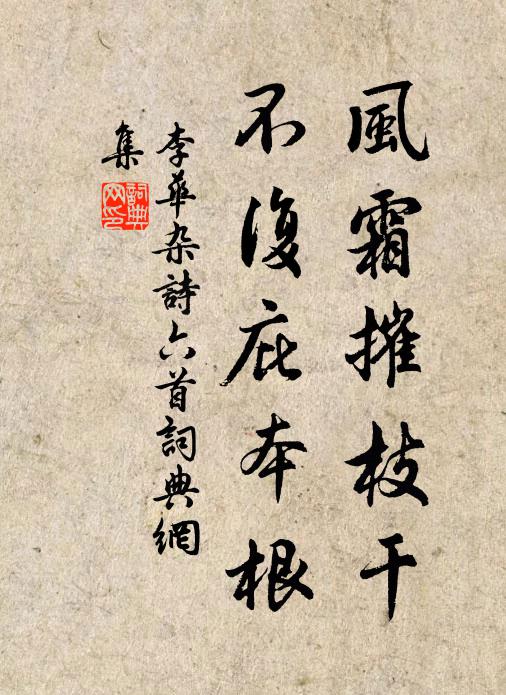 風霜摧枝干
不復庇本根
李華杂詩六首詞典網
集
詞典
网印